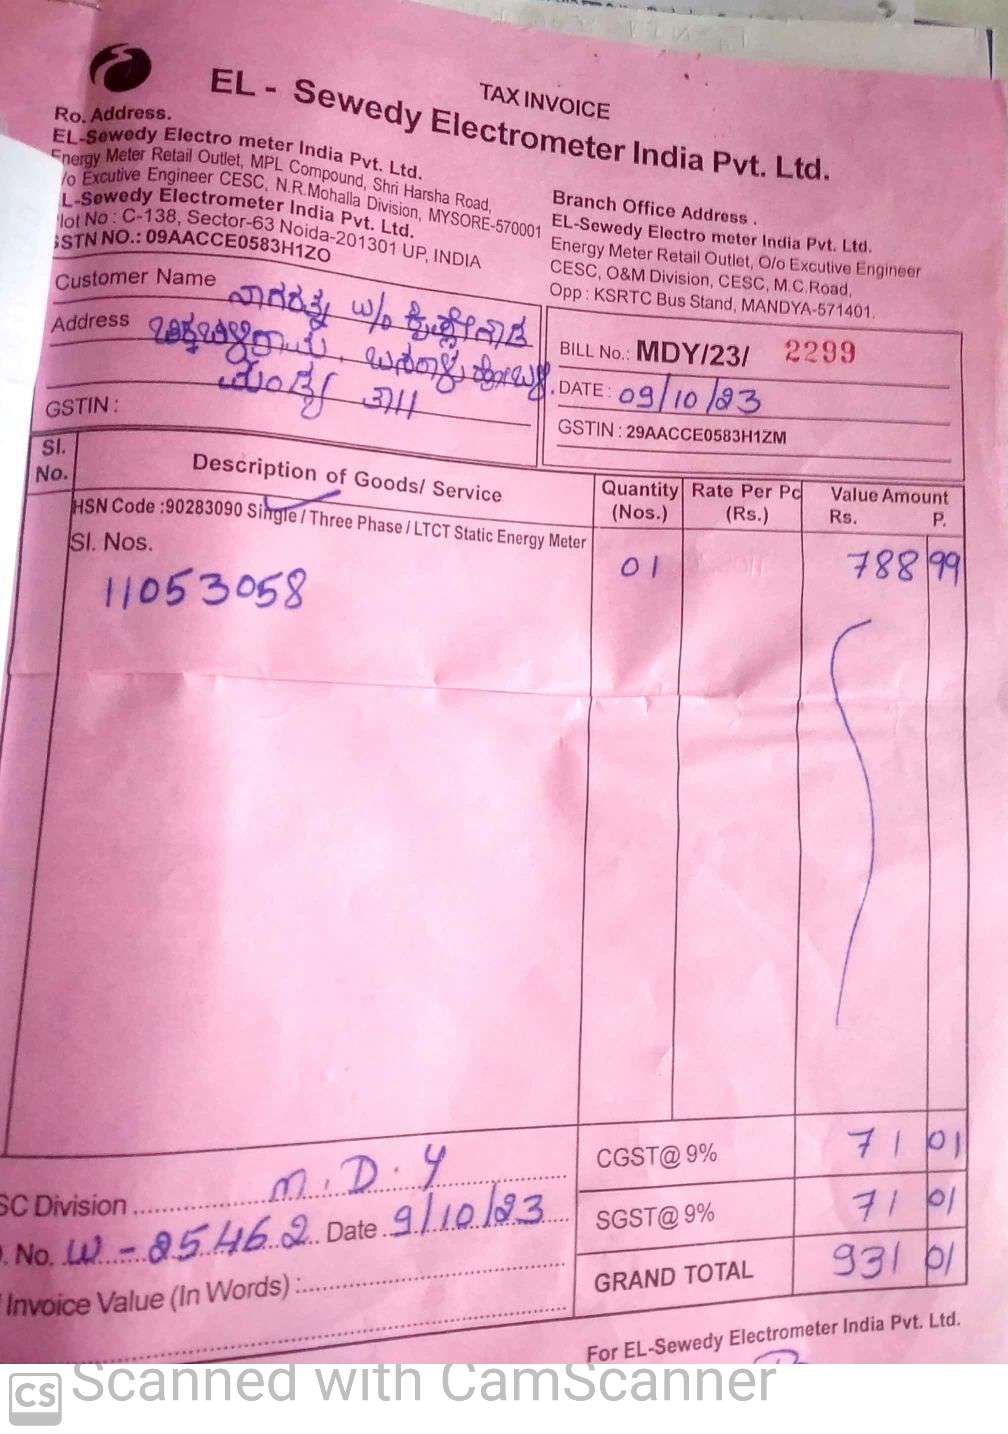 TAX INVOICE
EL - Sewedy Electrometer India Pvt. Ltd.
Ro. Address.
EL-Sewedy Electro meter India Pvt. Ltd.
Energy Meter Retail Outlet, MPL Compound, Shri Harsha Road,
/o Excutive Engineer CESC, N.R.Mohalla Division, MYSORE-570001
L-Sewedy Electrometer India Pvt. Ltd.
lot No : C-138, Sector-63 Noida-201301 UP, INDIA
STN NO.: 09AACCE0583H1ZO
Branch Office Address .
EL-Sewedy Electro meter India Pvt. Ltd.
Energy Meter Retail Outlet, O/o Excutive Engineer
CESC, O&M Division, CESC, M.C.Road,
Opp : KSRTC Bus Stand, MANDYA-571401.
Customer Name ನಾಗರತ್ನ w/o
Address
ಮಂಡ್ಯ ತಾ॥
GSTIN :
BILL No.: MDY/23/ 2299
DATE : 09/10/23
GSTIN : 29AACCE0583H1ZM
Sl. No. Description of Goods/ Service Quantity (Nos.) Rate Per Pc (Rs.) Value Amount Rs. P.
HSN Code :90283090 Single / Three Phase / LTCT Static Energy Meter
Sl. Nos. 01 788 99
11053058
CGST@ 9% 71 01
SGST@ 9% 71 01
GRAND TOTAL 931 01
SC Division M.D.Y
. No. W-25462 Date 9/10/23
Invoice Value (In Words) :
For EL-Sewedy Electrometer India Pvt. Ltd.
CS Scanned with CamScanner